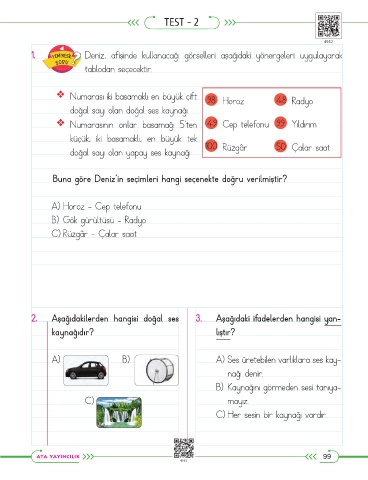 TEST - 2
1. Deniz, afişinde kullanacağı görselleri aşağıdaki yönergeleri uygulayarak
tablodan seçecektir.
❖ Numarası iki basamaklı en büyük çift
doğal sayı olan doğal ses kaynağı
❖ Numarasının onlar basamağı 5'ten
küçük, iki basamaklı, en büyük tek
doğal sayı olan yapay ses kaynağı
98 Horoz
48 Radyo
49 Cep telefonu
99 Yıldırım
100 Rüzgâr
50 Çalar saat
Buna göre Deniz'in seçimleri hangi seçenekte doğru verilmiştir?
A) Horoz - Cep telefonu
B) Gök gürültüsü - Radyo
C) Rüzgâr - Çalar saat
2. Aşağıdakilerden hangisi doğal ses
kaynağıdır?
A)
B)
C)
3. Aşağıdaki ifadelerden hangisi yan-
lıştır?
A) Ses üretebilen varlıklara ses kay-
nağı denir.
B) Kaynağını görmeden sesi tanıya-
mayız.
C) Her sesin bir kaynağı vardır.
ATA YAYINCILIK
99